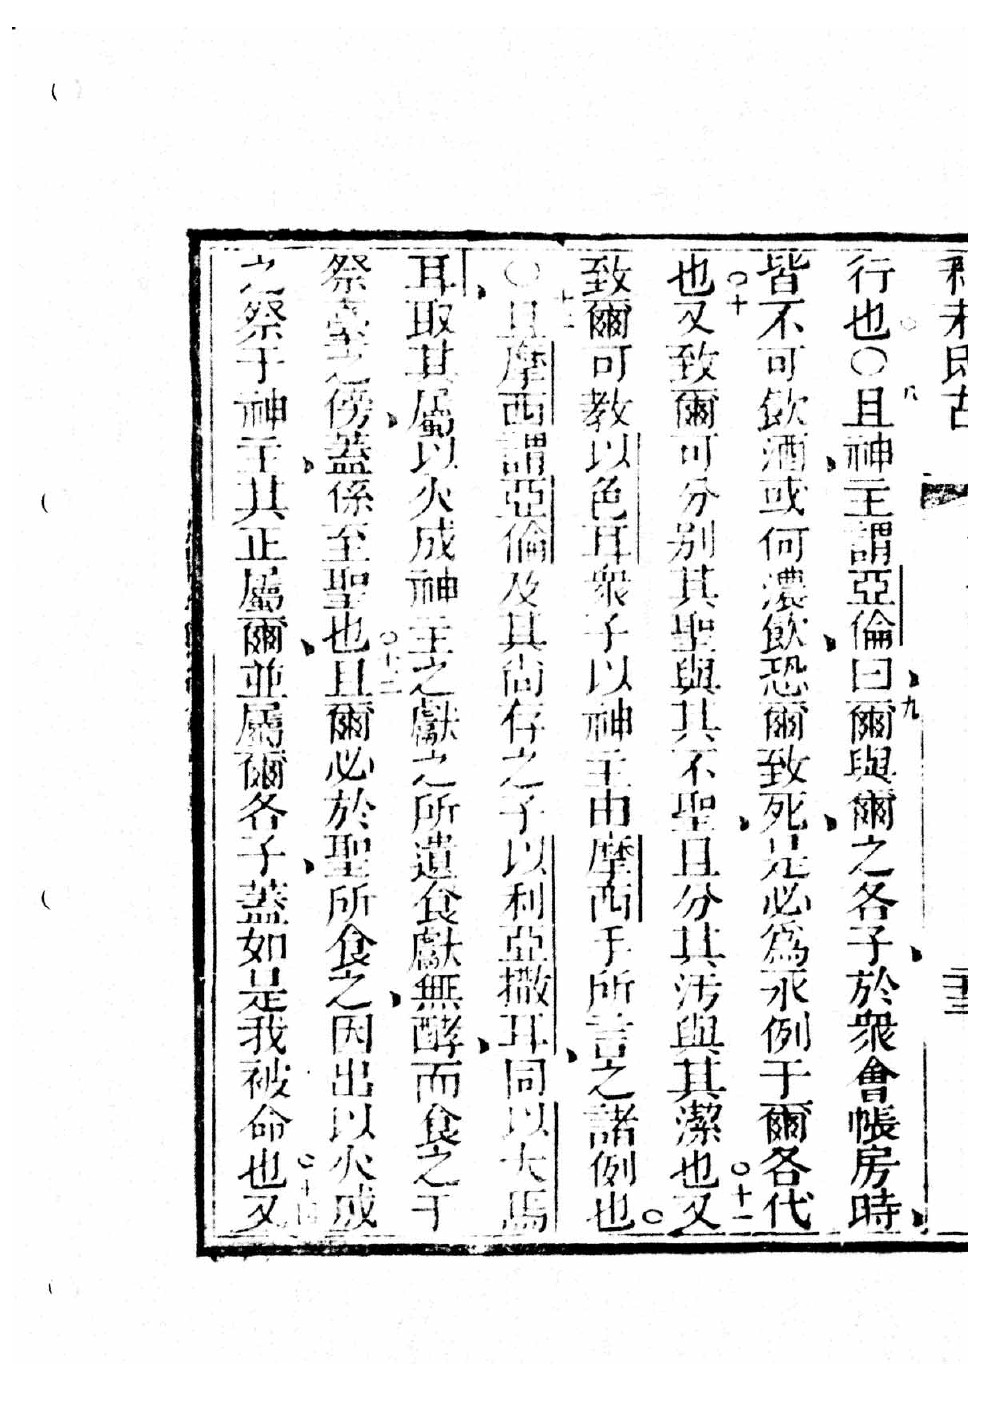 利未氏古
二十三
行也○且神主謂亞倫曰爾與爾之各子於眾會帳房時
八
九
皆不可飲酒或何濃飲恐爾致死是必為永例于爾各代
○十
也又致爾可分別其聖與其不聖且分其汚與其潔也又
○十一
致爾可教以色耳眾子以神主由摩西手所言之諸例也
○且摩西謂亞倫及其尚存之子以利亞撒耳同以大馬
十二
耳取其屬以火成神主之獻之所遺食獻無酵而食之于
祭臺之傍蓋係至聖也且爾必於聖所食之因出以火成
○十三
之祭于神主其正屬爾並屬爾各子蓋如是我被命也又
○十四